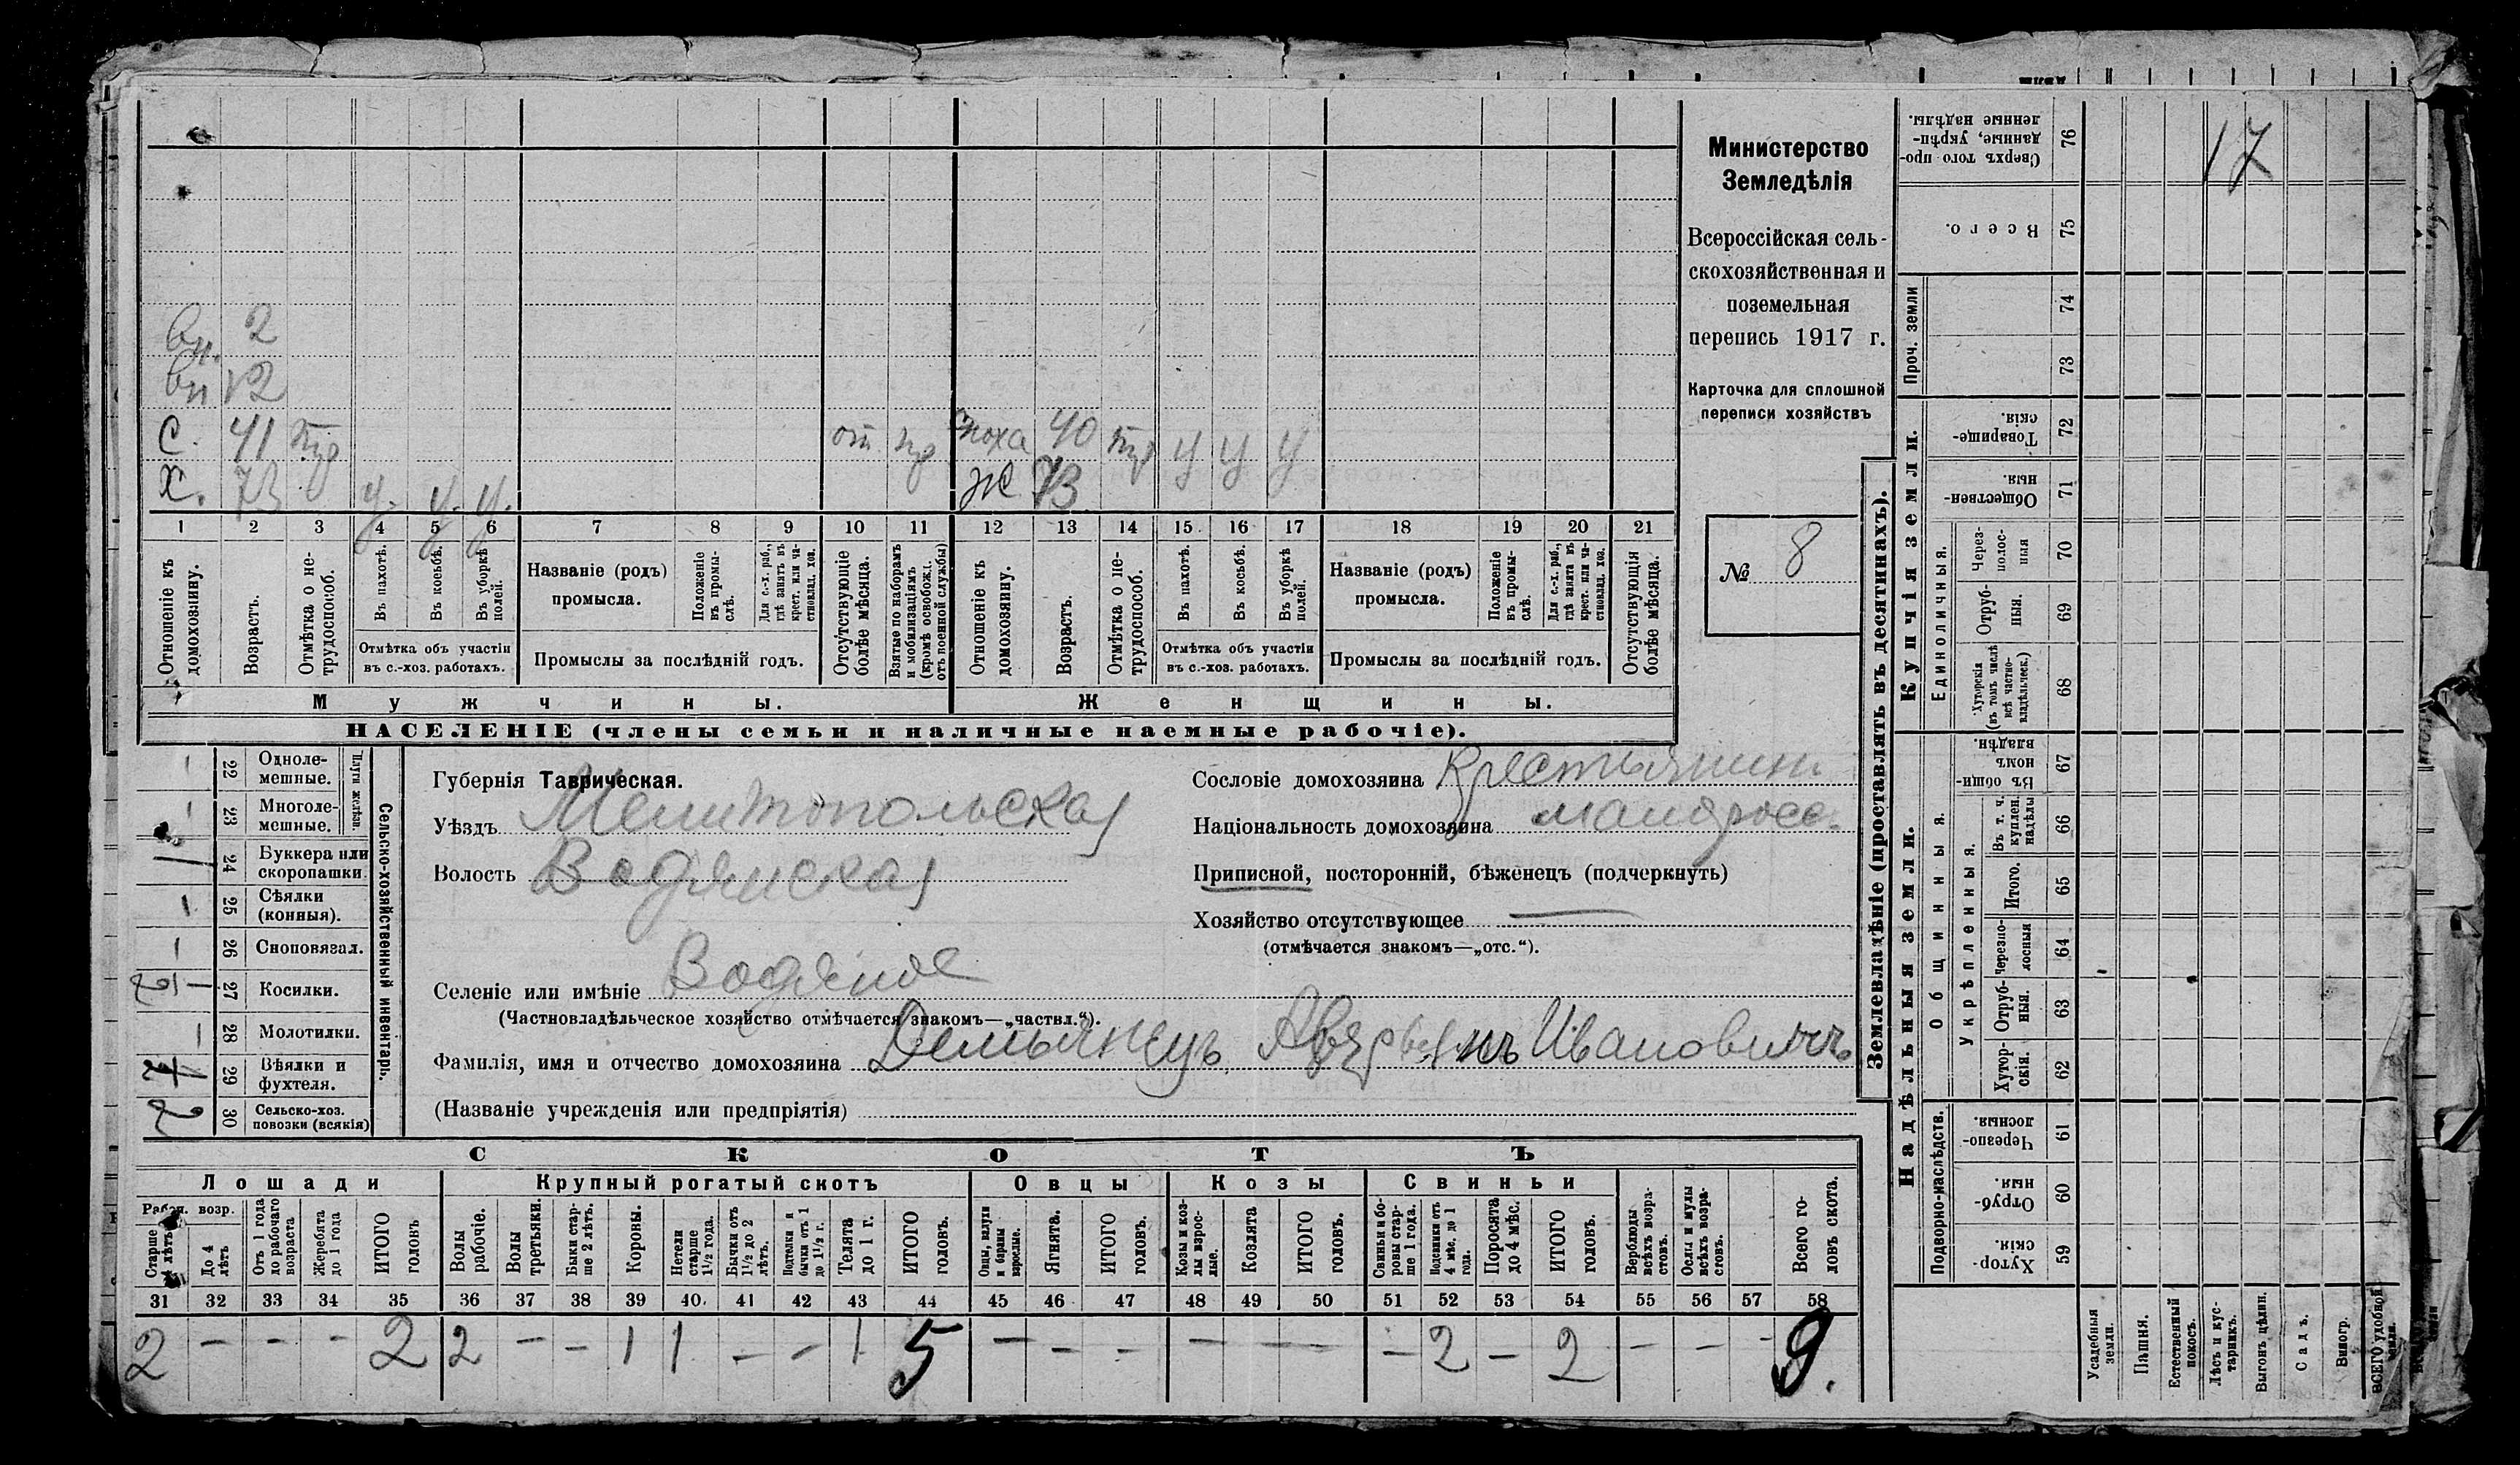 вн. 2
вн 12
С. 41 тр от пр сноха 40 тр у у у
Х. 73 у. у. у. ж 73
1 2 3 4 5 6 7 8 9 10 11 12 13 14 15 16 17 18 19 20 21
Отношеніе къ домохозяину.
Возрастъ.
Отмѣтка о не-трудоспособ.
Въ пахотѣ.
Въ косьбѣ.
Въ уборкѣ полей.
Отмѣтка объ участіи
въ с.-хоз. работахъ.
Названіе (родъ)
промысла.
Положеніе въ промы-слѣ.
Для с.-х. раб., гдѣ занятъ въ крест. или ча-стновлад. хоз.
Промыслы за послѣдній годъ.
Отсутствующіе болѣе мѣсяца.
Взятые по наборамъ и мобилизаціямъ (кромѣ освобожд. отъ военной службы)
Отношеніе къ домохозяину.
Возрастъ.
Отмѣтка о не-трудоспособ.
Въ пахотѣ.
Въ косьбѣ.
Въ уборкѣ полей.
Отмѣтка объ участіи
въ с.-хоз. работахъ.
Названіе (родъ)
промысла.
Положеніе въ промы-слѣ.
Для с.-х. раб., гдѣ занята въ крест. или ча-стновлад. хоз.
Промыслы за послѣдній годъ.
Отсутствующія болѣе мѣсяца.
Мужчины. Женщины.
НАСЕЛЕНІЕ (члены семьи и наличные наемные рабочіе).
Министерство
Земледѣлія
Всероссійская сель-
скохозяйственная и
поземельная
перепись 1917 г.
Карточка для сплошной
переписи хозяйствъ
№ 8
Сельско-хозяйственный инвентарь.
Плуги желѣзн.
22 Одноле-мешные.
23 Многоле-мешные.
24 Буккера или скоропашки
25 Сѣялки (конныя).
26 Сноповязал.
27 Косилки.
28 Молотилки.
29 Вѣялки и фухтеля.
2 30 Сельско-хоз. повозки (всякія)
Губернія Таврическая.
Уѣздъ Мелитопольская
Волость Водянская
Селеніе или имѣніе Водяное
(Частновладѣльческое хозяйство отмѣчается знакомъ—„частвл.“).
Фамилія, имя и отчество домохозяина Демьянецъ Аверьянъ Ивановичъ
(Названіе учрежденія или предпріятія)
Сословіе домохозяина Крестьянинъ
Національность домохозяина малоросс.
Приписной, посторонній, бѣженецъ (подчеркнуть)
Хозяйство отсутствующее —
(отмѣчается знакомъ—„отс.“).
СКОТЪ
Лошади Крупный рогатый скотъ Овцы Козы Свиньи
Рабоч. возр.
Старше 4 лѣтъ
До 4 лѣтъ
Отъ 1 года до рабочаго возраста
Жеребята до 1 года
ИТОГО головъ
Волы рабочіе.
Волы третьяки.
Быки стар-ше 2 лѣтъ.
Коровы.
Нетели старше 1½ года.
Бычки отъ 1½ до 2 лѣтъ.
Подтелки и бычки отъ 1 до 1½ г.
Телята до 1 г.
ИТОГО головъ.
Овцы, валухи и бараны взрослые.
Ягнята.
ИТОГО головъ.
Козы и коз-лы взрос-лые.
Козлята
ИТОГО головъ.
Свиньи и бо-ровы стар-ше 1 года.
Подсвинки отъ 4 мѣс. до 1 года.
Поросята до 4 мѣс.
ИТОГО головъ.
Верблюды всѣхъ возра-стовъ.
Ослы и мулы всѣхъ возра-стовъ.
Всего го-ловъ скота.
31 32 33 34 35 36 37 38 39 40. 41 42 43 44 45 46 47 48 49 50 51 52 53 54 55 56 57 58
2 — — — 2 2 — — 1 1 — — 1 5 — — — — — — 2 — 2 — — - 9.
Землевладѣніе (проставлять въ десятинахъ).
Купчія земли.
Надѣльныя земли.
Сверхъ того про-данные, укрѣп-ленные надѣлы. 76 17
Всего. 75
Проч. земли 74
73
Товарище-скія. 72
Обществен-ныя. 71
Единоличныя.
Через-полос-ныя 70
Отруб-ныя. 69
Хуторскія (въ томъ числѣ всѣ частно-владѣльческ.) 68
Общинныя.
Въ общи-номъ владѣн. 67
Укрѣпленныя.
Въ т. ч. куплен. надѣлы 66
Итого. 65
Черезпо-лосныя 64
Отруб-ныя. 63
Хутор-скія. 62
Подворно-наслѣдств.
Черезпо-лосныя. 61
Отруб-ныя. 60
Хутор-скія. 59
Усадебныя земли.
Пашня.
Естественный покосъ.
Лѣсъ и кус-тарникъ.
Выгонъ цѣлин.
Садъ.
Виногр.
ВСЕГО удобной земли.